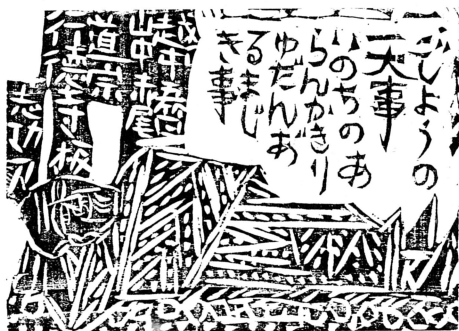 ごしようの
一大事
いのちのあ
らんかぎり
ゆだんあ
るまじ
き事
山中赤尾
道宗
行徳寺板
志功